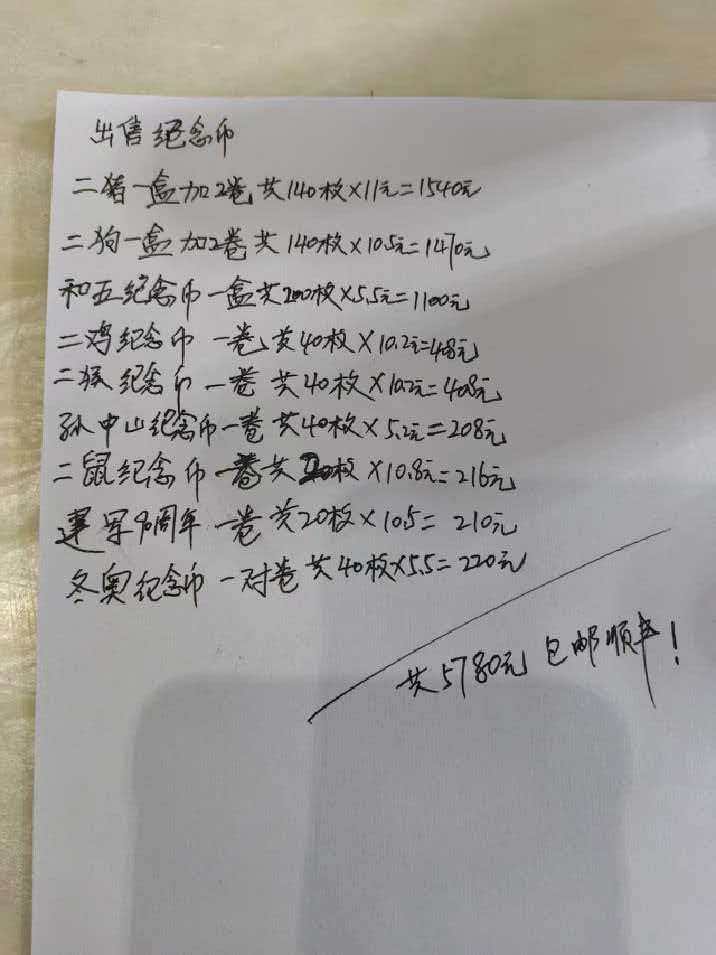 出售纪念币
二猪一盒加2卷共140枚×11元=1540元
二狗一盒加2卷共140枚×10.5元=1470元
和五纪念币一盒共200枚×5.5元=1100元
二鸡纪念币 一卷共40枚×10.2元=408元
二猴纪念币 一卷共40枚×10.2元=408元
孙中山纪念币一卷共40枚×5.2元=208元
二鼠纪念币 一卷共20枚×10.8元=216元
建军90周年 一卷共20枚×10.5=210元
冬奥纪念币 一对卷共40枚×5.5=220元
共5780元包邮顺丰!